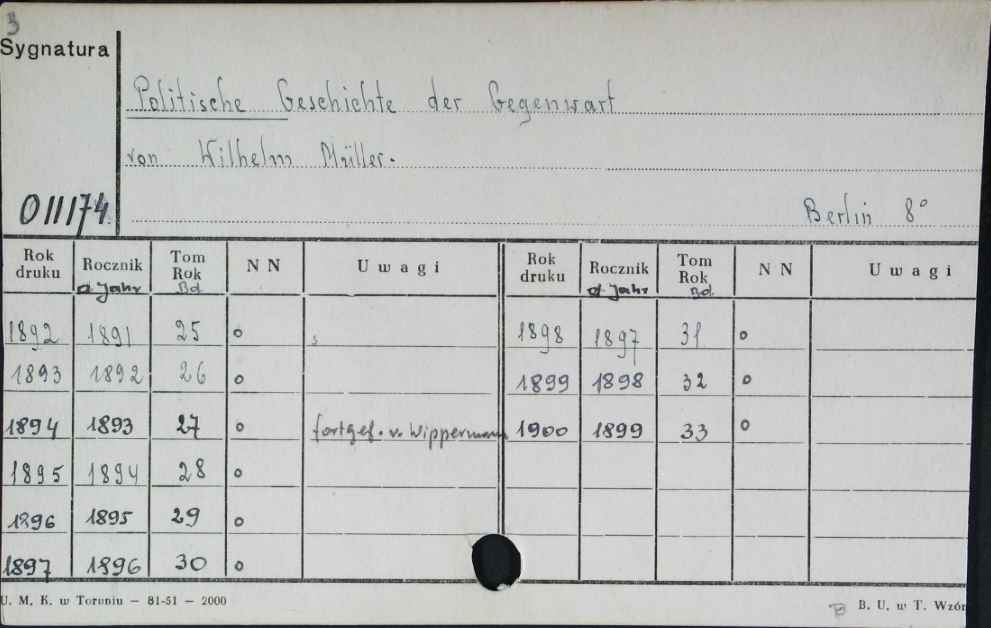 3
Sygnatura
Politische Geschichte der Gegenwart
von Wilhelm Müller.
011174.
Berlin 8°
Rok druku Rocznik d. Jahr Tom Rok Bd. N N Uwagi Rok druku Rocznik d. Jahr Tom Rok Bd. N N Uwagi
1892 1891 25 o s 1898 1897 31 o
1893 1892 26 o 1899 1898 32 o
1894 1893 27 o fortgef. v. Wippermann 1900 1899 33 o
1895 1894 28 o
1896 1895 29 o
1897 1896 30 o
U. M. K. w Toruniu – 81-51 – 2000
B B. U. w T. Wzór